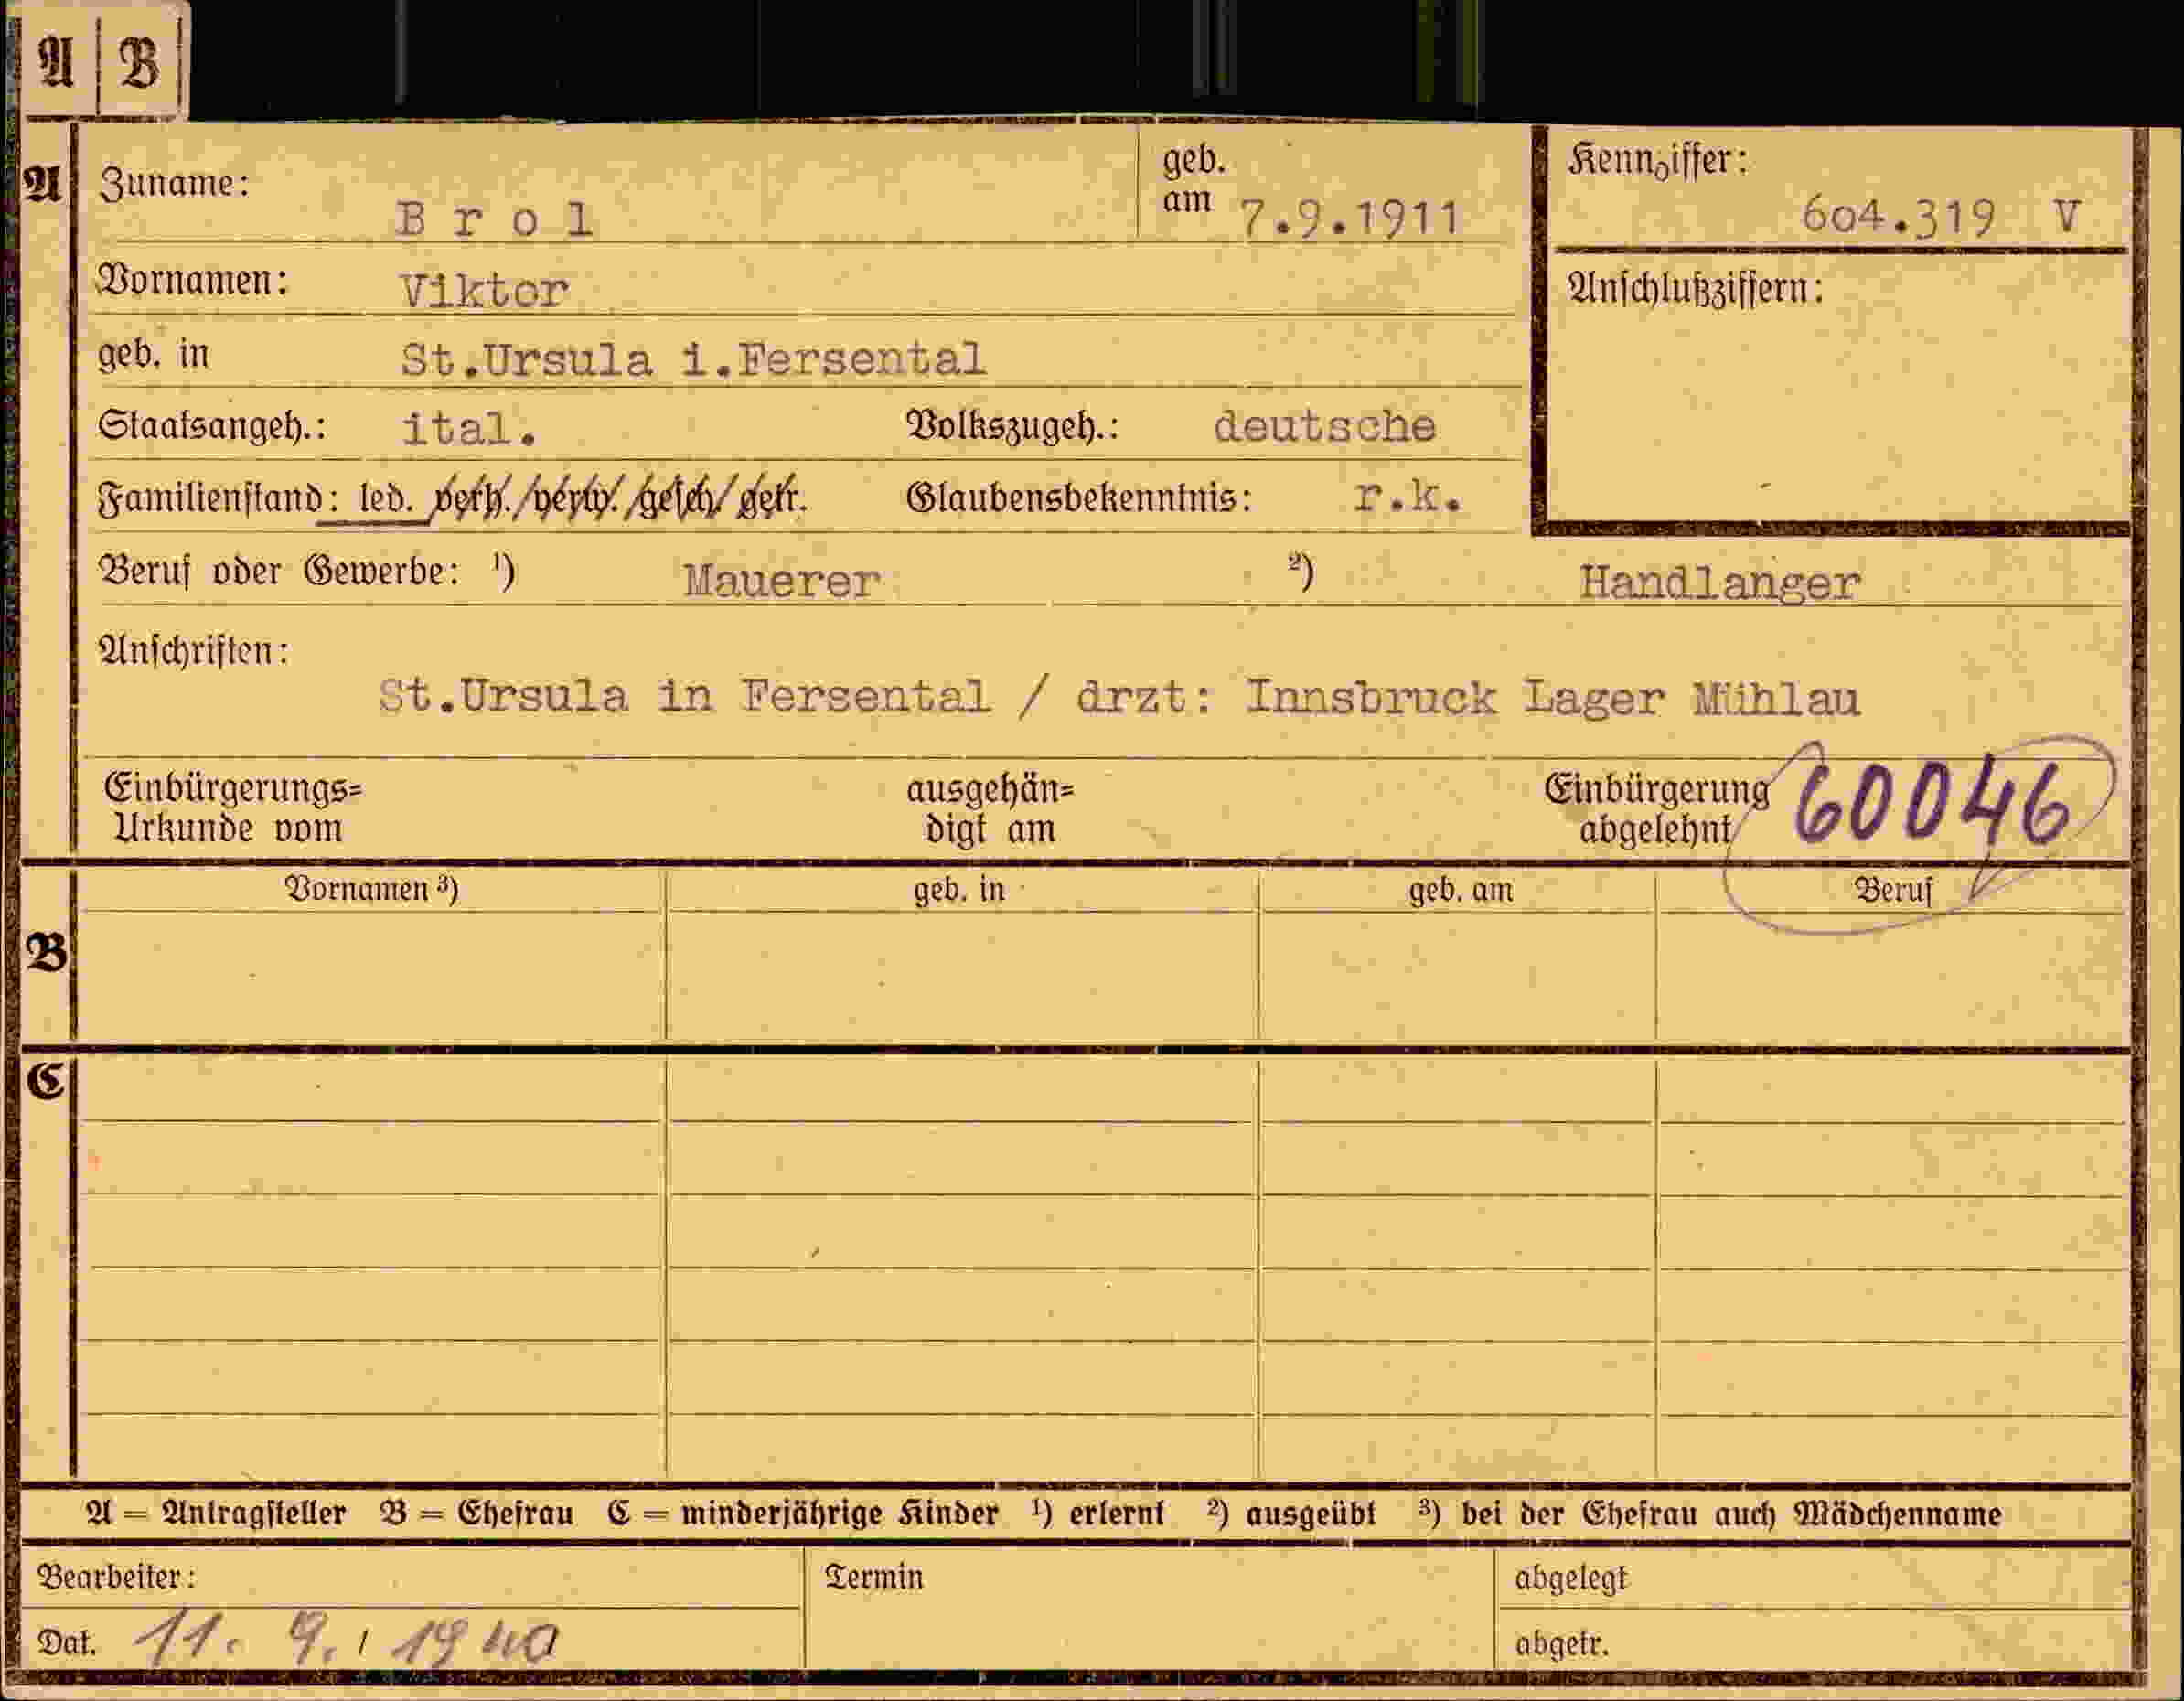 A B
A Zuname: Brol geb. am 7.9.1911 Kennziffer: 604.319 V
Vornamen: Viktor Anschlußziffern:
geb. in St.Ursula i.Fersental
Staatsangeh.: ital. Volkszugeh.: deutsche
Familienstand: led. verh./verw./gesch/getr. Glaubensbekenntnis: r.k.
Beruf oder Gewerbe: ¹) Mauerer ²) Handlanger
Anschriften:
St.Ursula in Fersental / drzt: Innsbruck Lager Mühlau
Einbürgerungs= ausgehän= Einbürgerung 60046
Urkunde vom digt am abgelehnt
Vornamen ³) geb. in geb. am Beruf
B
C
A = Antragsteller B = Ehefrau C = minderjährige Kinder ¹) erlernt ²) ausgeübt ³) bei der Ehefrau auch Mädchenname
Bearbeiter: Termin abgelegt
Dat. 11. 9. 1940 abgetr.